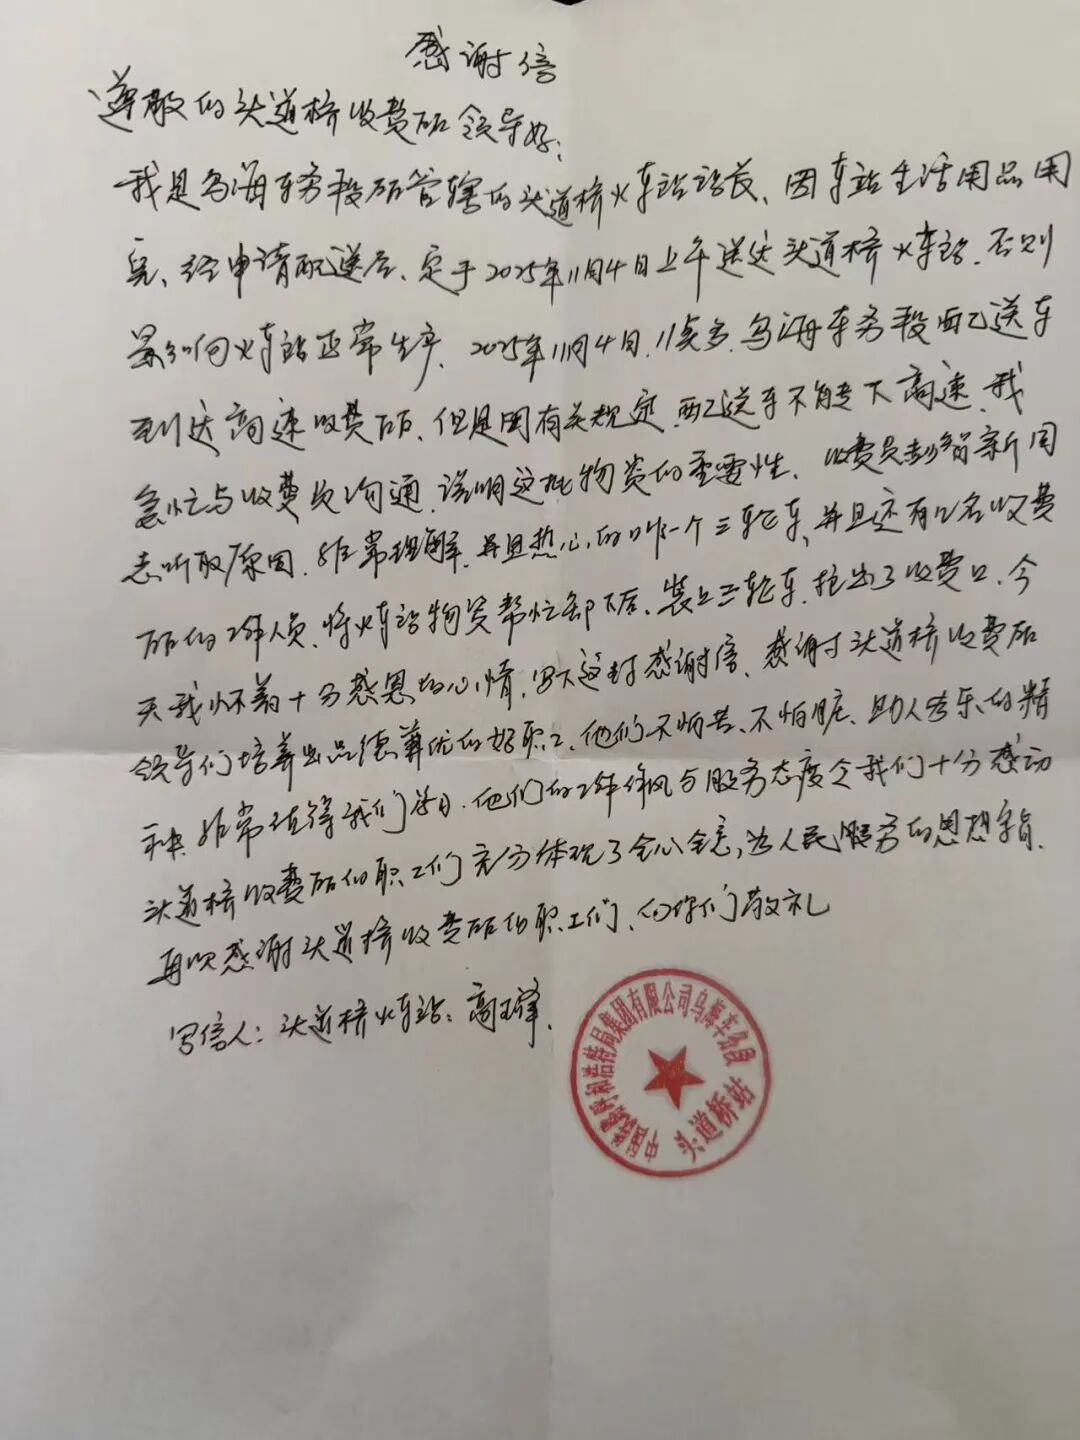 感谢信
尊敬的头道桥收费所领导好:
我是乌海车务段所管辖的头道桥火车站站长、因车站生活用品用
完、经申请配送后、定于2025年11月4日上午送达头道桥火车站.否则
影响火车站正常生产.2025年11月4日.11点多.乌海车务段配送车
到达高速收费所、但是因有关规定.配送车不能下高速.我
急忙与收费员沟通.说明这批物资的重要性.收费员彭智新同
志听取原因.非常理解.并且热心的叫一个三轮车,并且还有几名收费
所的工作人员.将火车站物资帮忙卸下后、装上三轮车.拉出了收费口.今
天我怀着十分感恩的心情,写下这封感谢信、感谢头道桥收费所
领导们培养出品德兼优的好职工、他们不怕苦、不怕脏、助人为乐的精
神.非常值得我们学习.他们的工作作风与服务态度令我们十分感动
头道桥收费所的职工们充分体现了全心全意,为人民服务的思想宗旨.
再次感谢头道桥收费所的职工们、向你们敬礼
写信人:头道桥火车站:高
中国铁路呼和浩特局集团有限公司乌海车务段
头道桥站